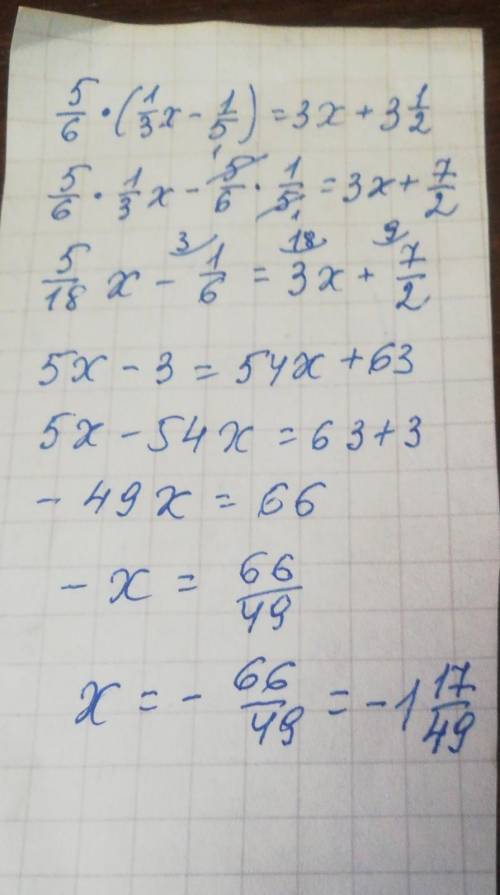 5/6 · (1/3 x - 1/5) = 3x + 3 1/2
5/6 · 1/3 x - 5/6 · 1/5 = 3x + 7/2
5/18 x - 1/6 = 3x + 7/2
5x - 3 = 54x + 63
5x - 54x = 63 + 3
- 49x = 66
- x = 66/49
x = - 66/49 = - 1 17/49